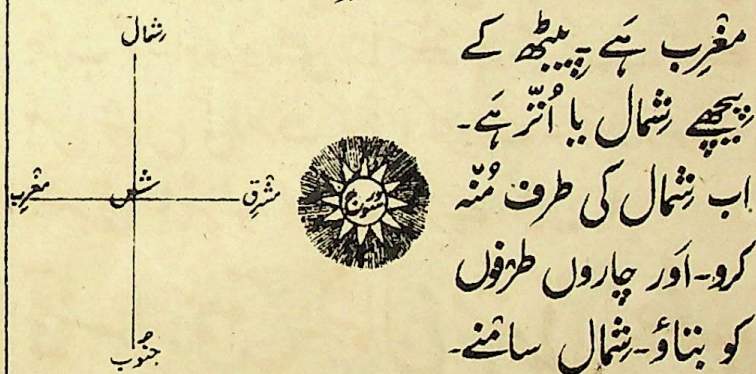 مغرِب ہَے ۔ پِیٹھ کے
پِیچھے شِمال یا اُتّر ہَے۔
اب شِمال کی طرف مُنّہ
کرو۔ اَور چاروں طرفوں
کو بتاؤ۔ شِمال سامنے۔
شِمال
مغرِب
مشرِق
سورج
جنُوب